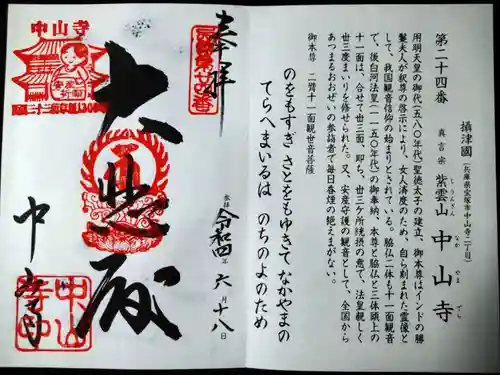 第二十四番
攝津國 (兵庫県宝塚市中山寺二丁目)
真言宗 紫雲山 中山寺
しうんざん なか やま でら
用明天皇の御代(五八〇年代)聖徳太子の建立、御本尊はインドの勝
鬘夫人が釈尊の啓示により、女人済度のため、自ら刻まれた霊像と
して、我国観音信仰の始まりとされている。脇仏二体も十一面観音
で、後白河法皇(一一五〇年代)の御奉納、本尊と脇仏と三体頭上の
十一面は、合せて卅三面、即ち、卅三ケ所統摂の意で、法皇親しく
卅三度まいりを修せられた。又、安産守護の観音として、全国から
あつまるおおぜいの参詣者で毎日香煙の絶えまがない。
御本尊 二臂十一面観世音菩薩
のをもすぎ さとをもゆきて なかやまの
てらへまいるは のちのよのため
奉拝
大悲殿
参拝 令和四年 六月十八日
中山寺
中山寺
安産祈願